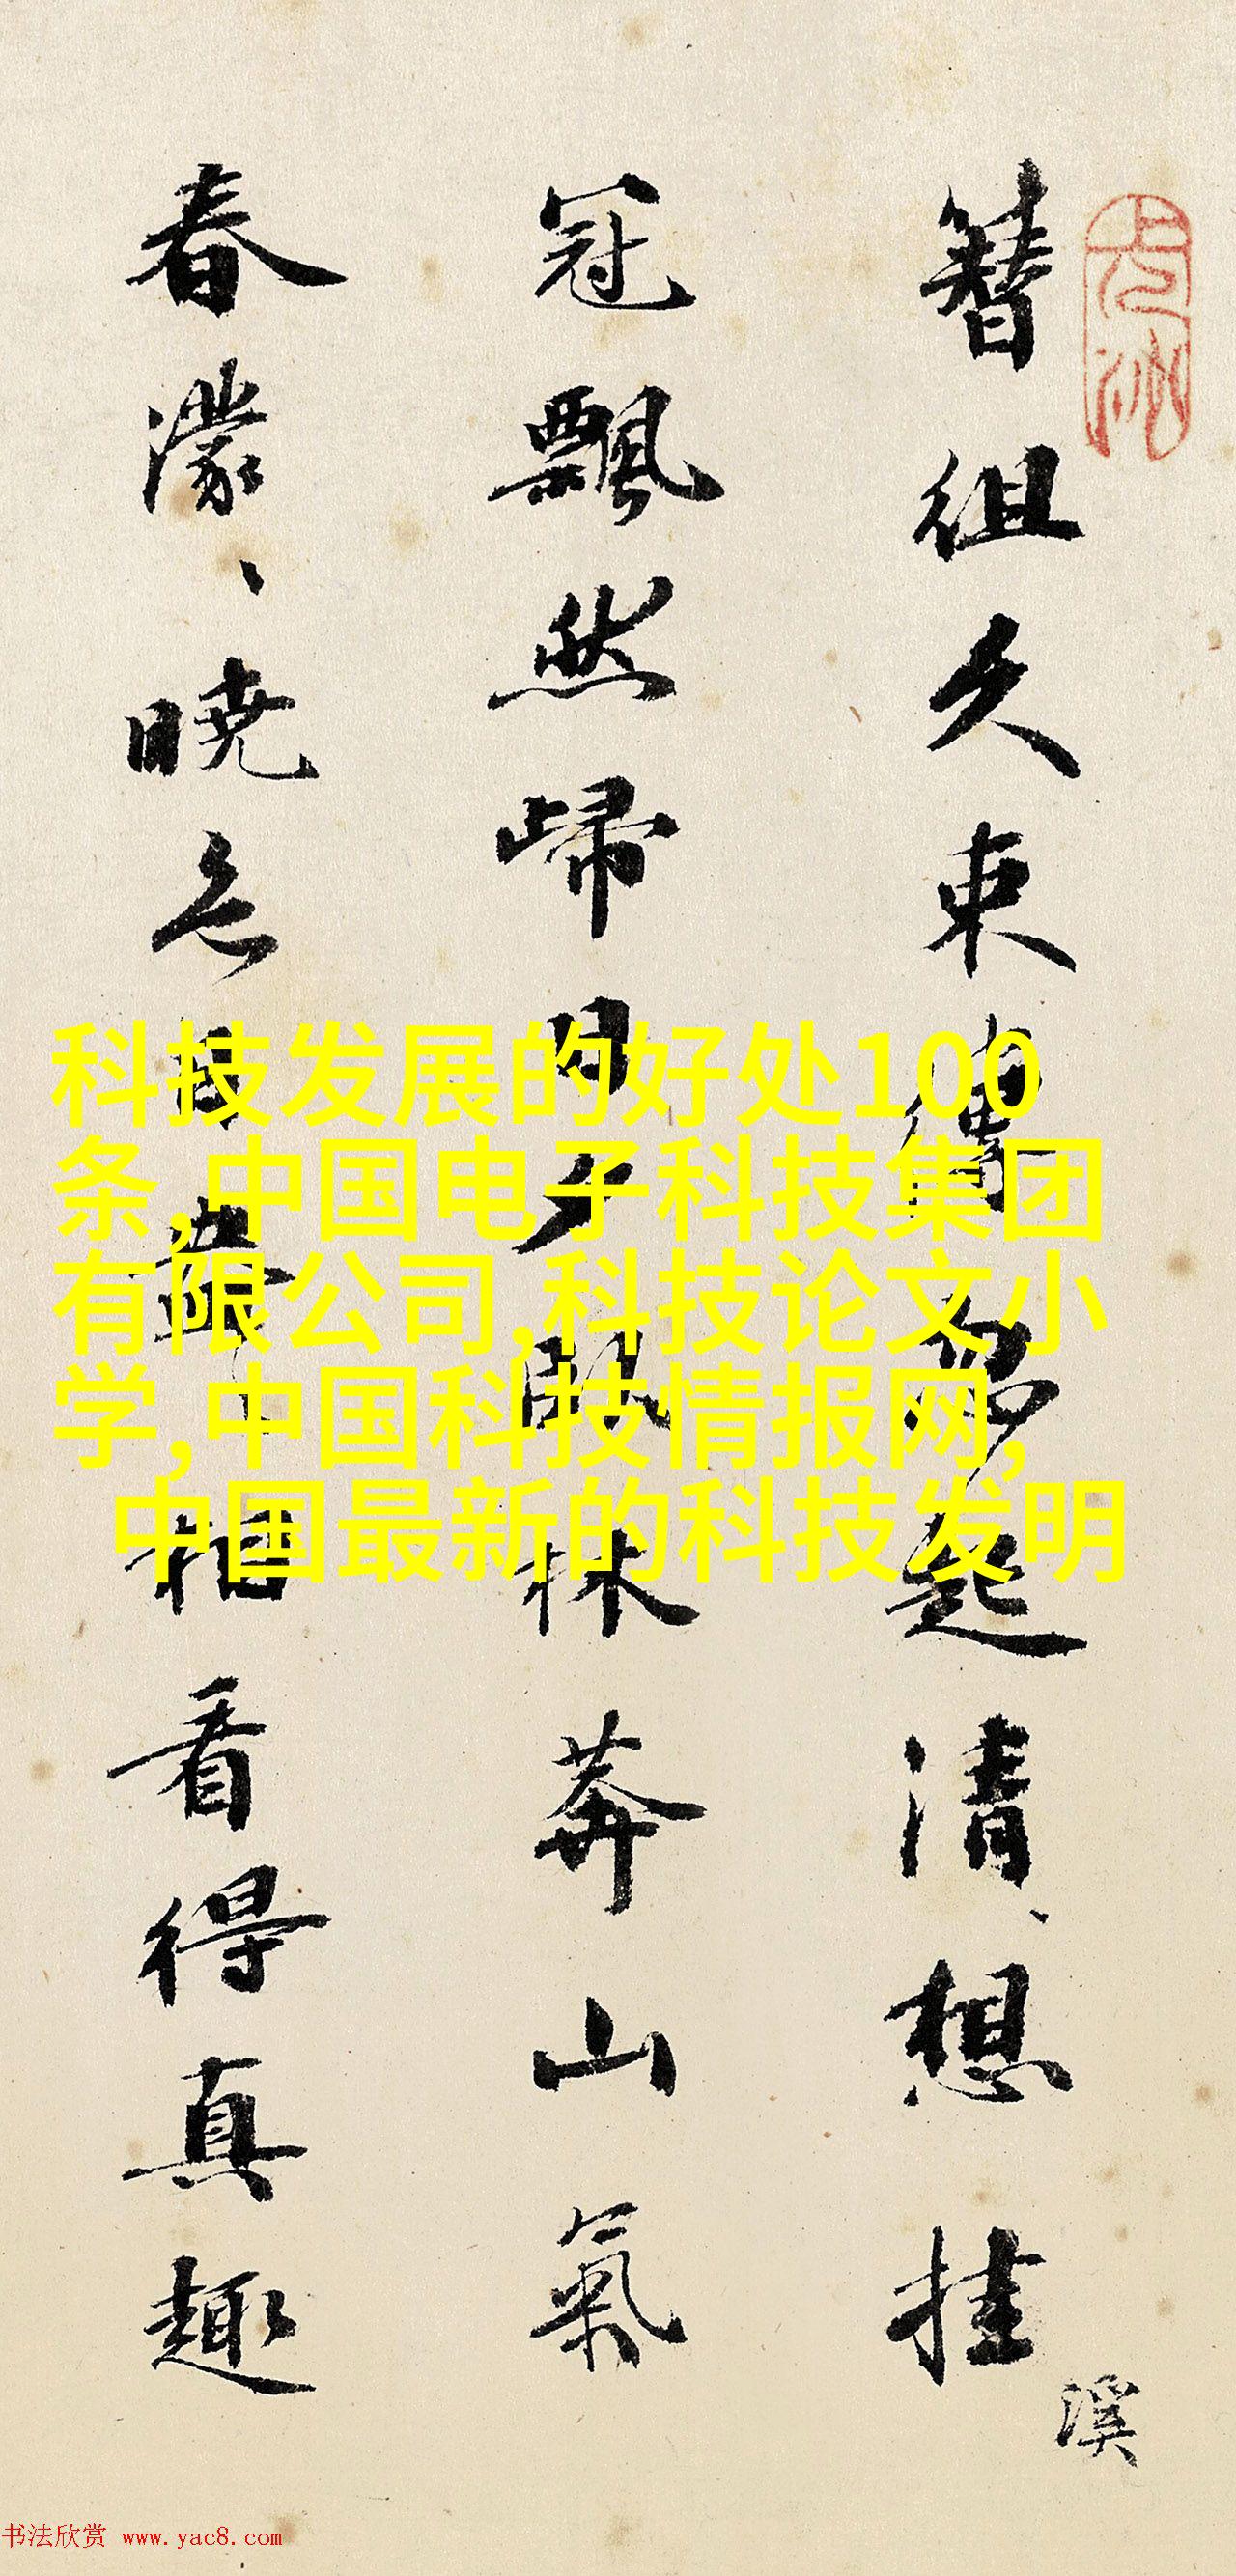 簪組久束起清、想挂
溪
冠飄然歸日夕臥林莽山氣
春濛、曉色相看得真趣
科技发展的好处100
条,中国电子科技集团
有限公司,科技论文小
学,中国科技情报网,
中国最新的科技发明
书法欣赏 www.yac8.com